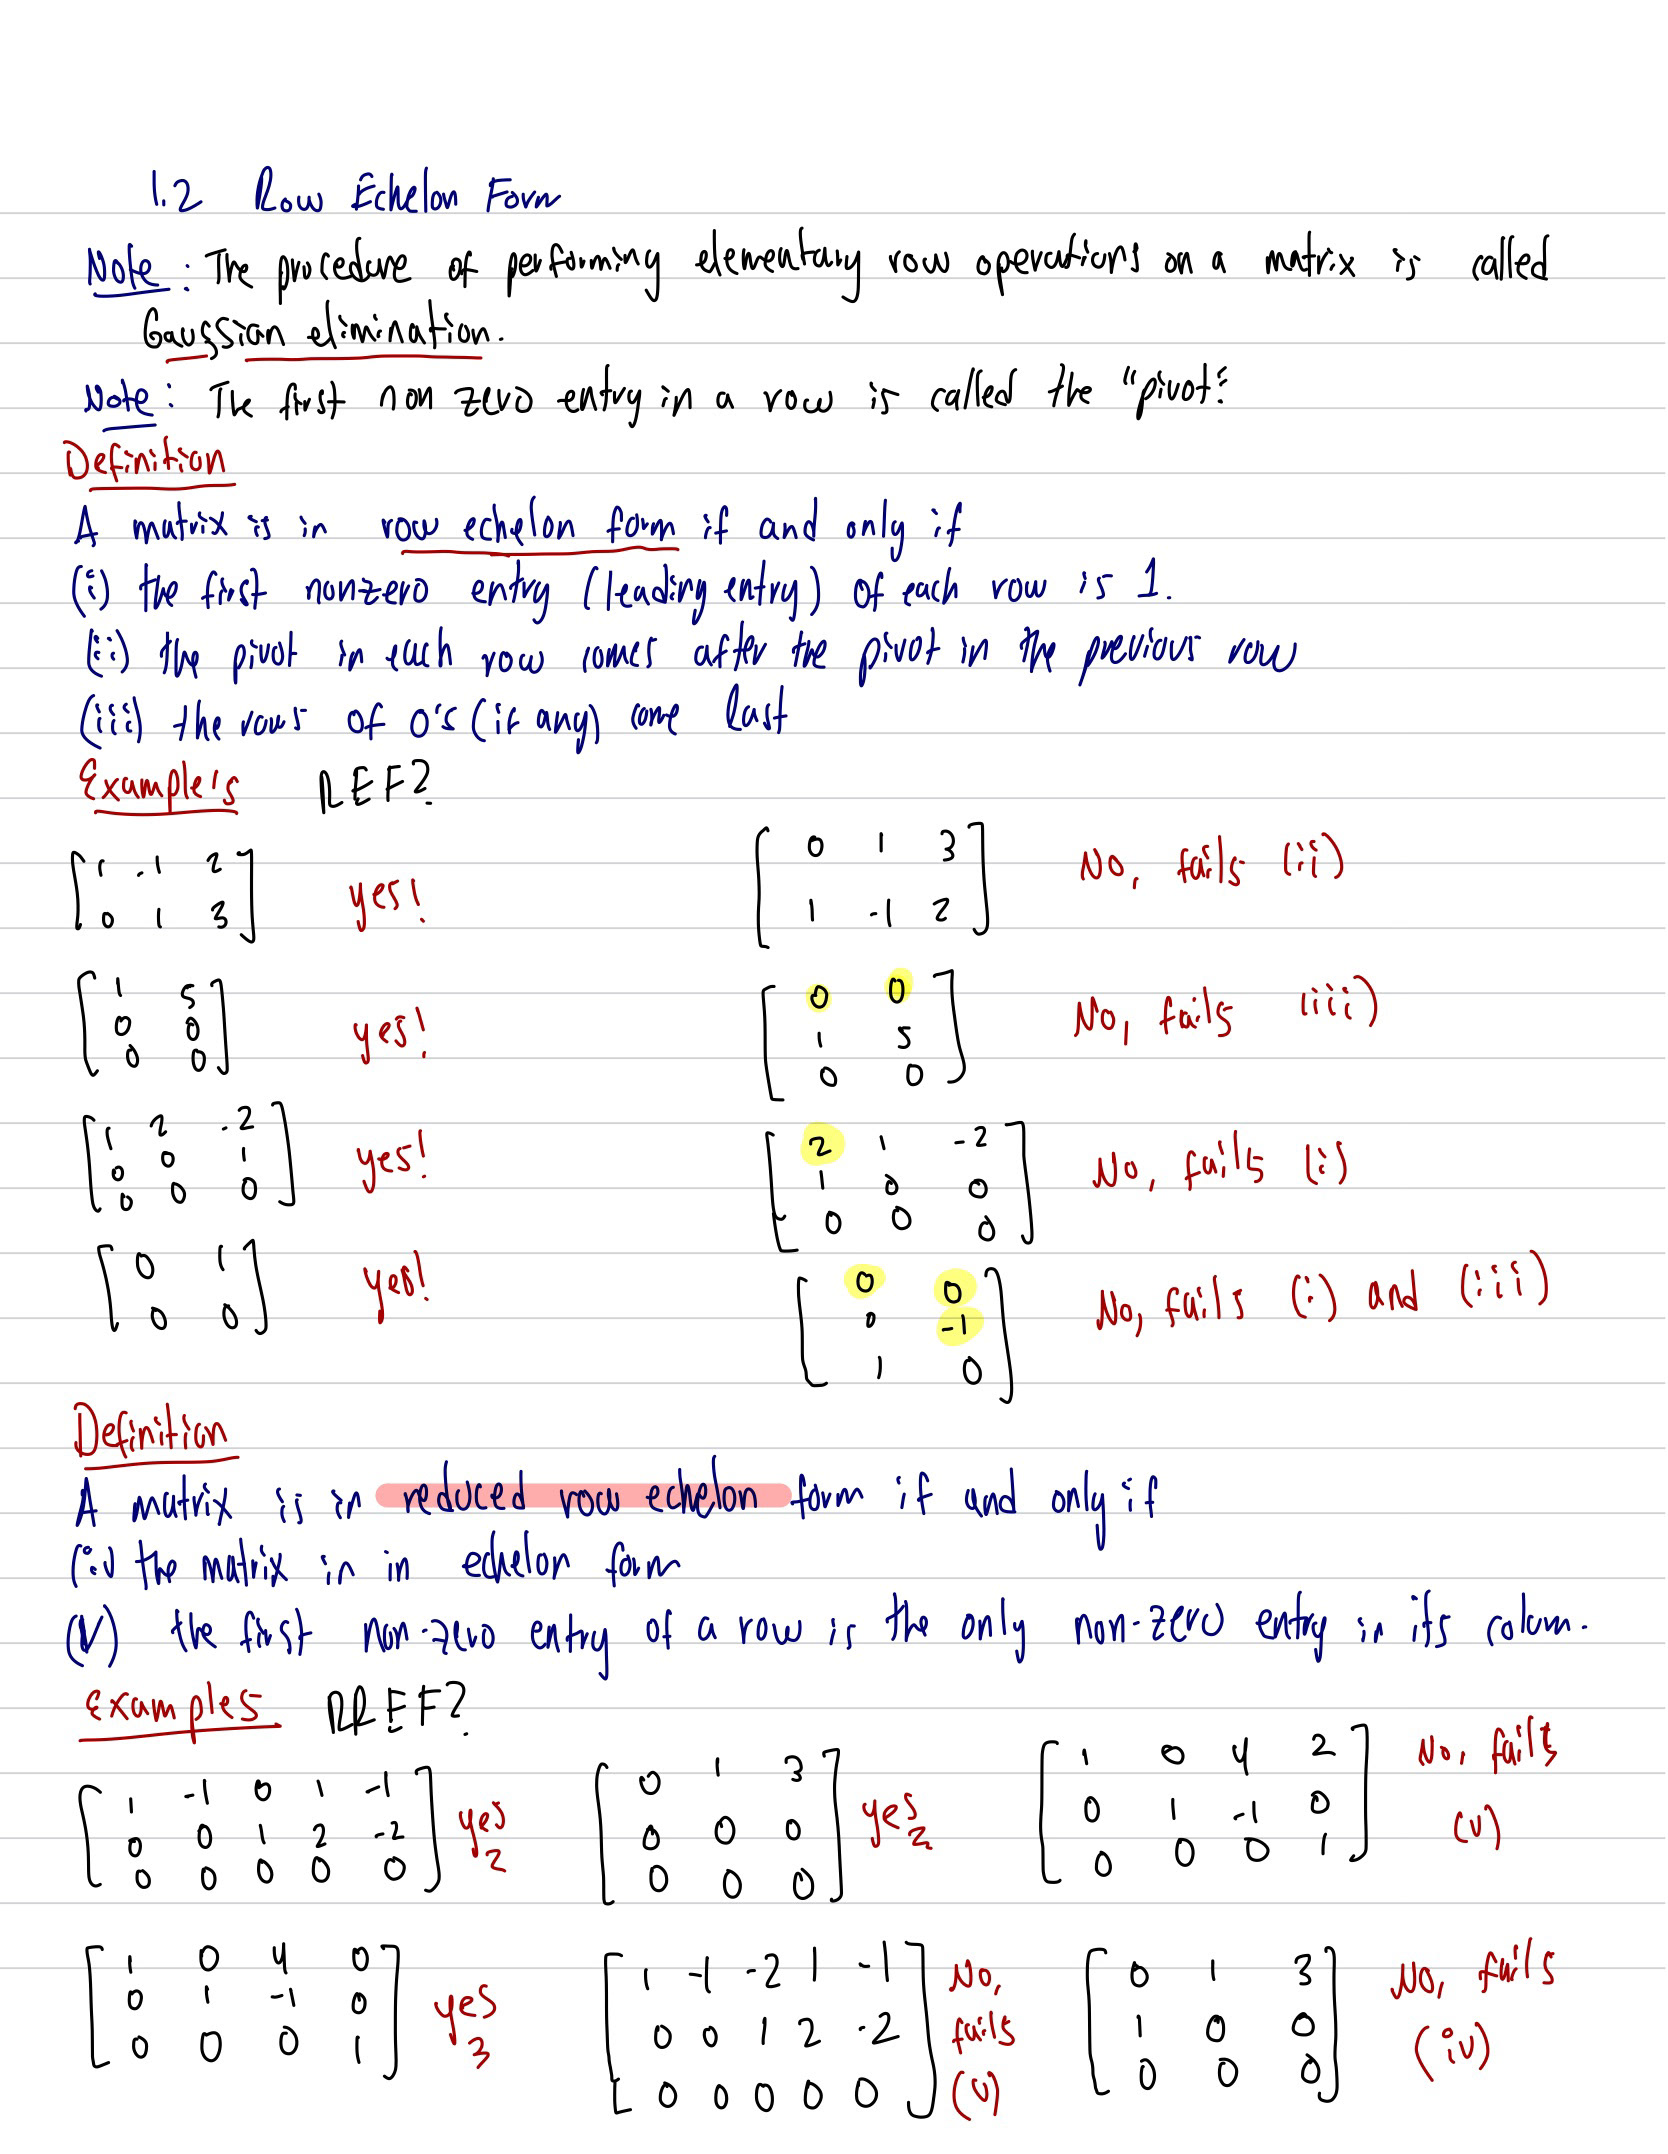 1.2 Row Echelon Form
Note: The procedure of performing elementary row operations on a matrix is called
Gaussian elimination.
Note: The first non zero entry in a row is called the "pivot".
Definition
A matrix is in row echelon form if and only if
(i) the first nonzero entry (leading entry) of each row is 1.
(ii) the pivot in each row comes after the pivot in the previous row
(iii) the rows of 0's (if any) come last
Example's REF?
[1 -1 2
0 1 3] yes!
[0 1 3
1 -1 2] No, fails (ii)
[1 5
0 0
0 0] yes!
[0 0
1 5
0 0] No, fails (iii)
[1 2 -2
0 0 1
0 0 0] yes!
[2 1 -2
1 0 0
0 0 0] No, fails (i)
[0 1
0 0] yes!
[0 0
0 -1
1 0] No, fails (i) and (iii)
Definition
A matrix is in reduced row echelon form if and only if
(iv) the matrix in in echelon form
(V) the first non-zero entry of a row is the only non-zero entry in its colum.
Examples RREF?
[1 -1 0 1 -1
0 0 1 2 -2
0 0 0 0 0] yes 2
[0 1 3
0 0 0
0 0 0] yes 2
[1 0 4 2
0 1 -1 0
0 0 0 1] No, fails (v)
[1 0 4 0
0 1 -1 0
0 0 0 1] yes 3
[1 -1 -2 1 -1
0 0 1 2 -2
0 0 0 0 0] No, fails (v)
[0 1 3
1 0 0
0 0 0] No, fails (iv)